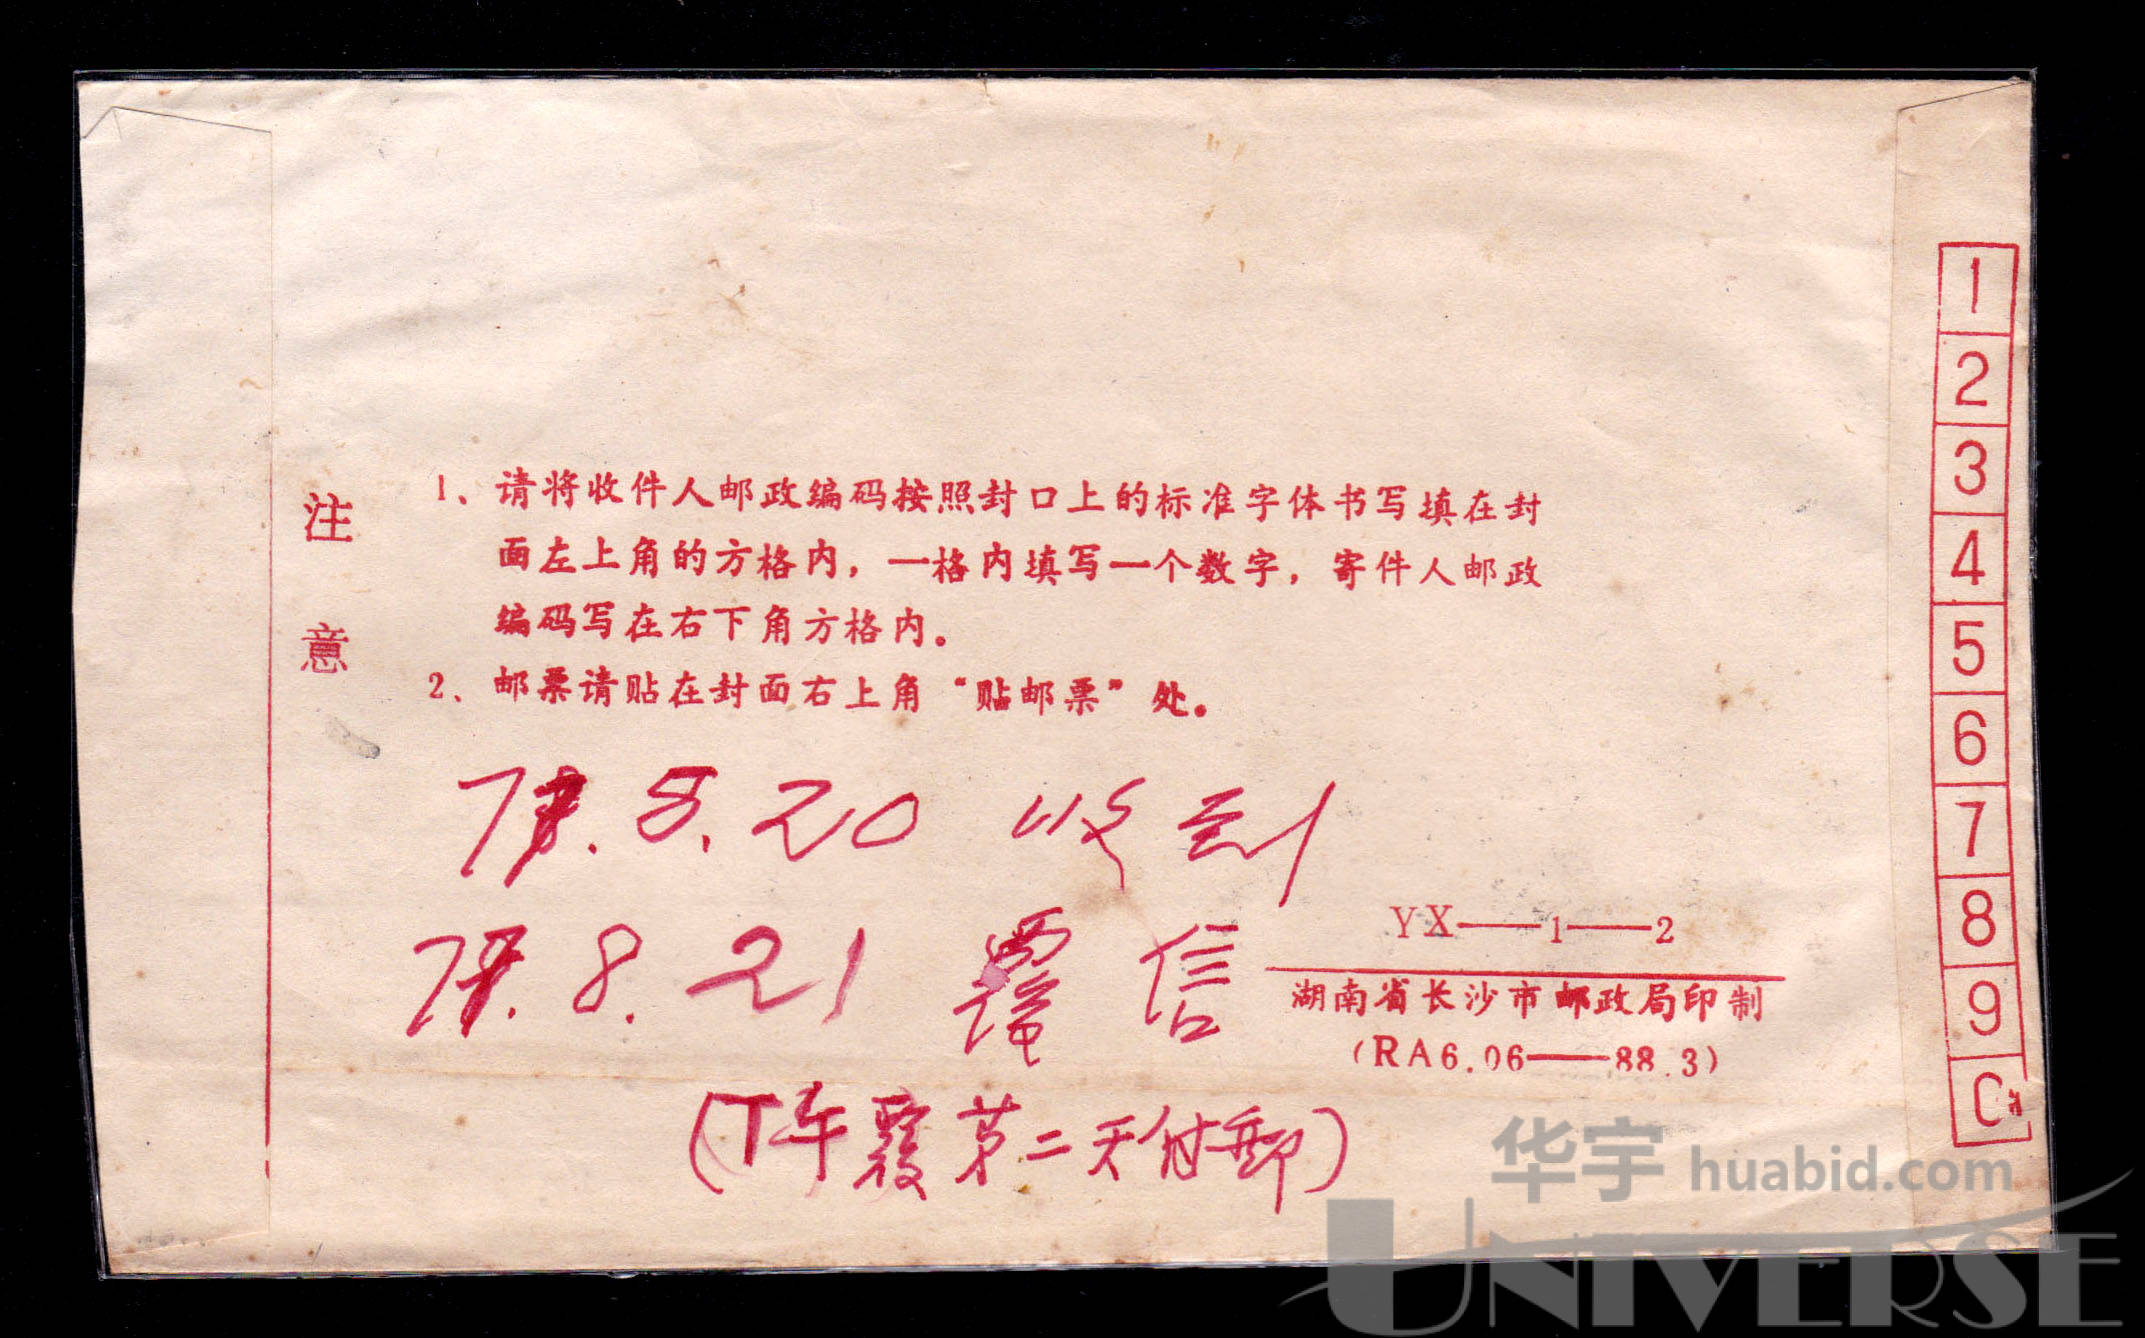 注意
1、请将收件人邮政编码按照封口上的标准字体书写填在封
面左上角的方格内，一格内填写一个数字，寄件人邮政
编码写在右下角方格内。
2、邮票请贴在封面右上角“贴邮票”处。
8.20 收到
8.21 覆信
(下午覆第二天付郵)
YX——1——2
湖南省长沙市邮政局印制
(RA6.06——88.3)
1
2
3
4
5
6
7
8
9
0
华宇 huabid.com
UNIVERSE